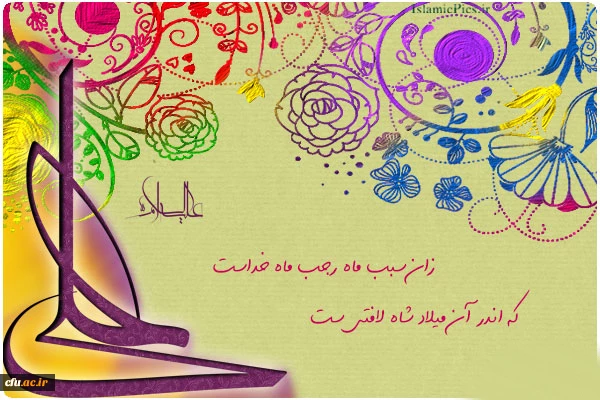 IslamicPics.ir
علی
علیه السلام
زان سبب ماه رجب ماه خداست
که اندر آن میلاد شاه لافتی ست
cfu.ac.ir